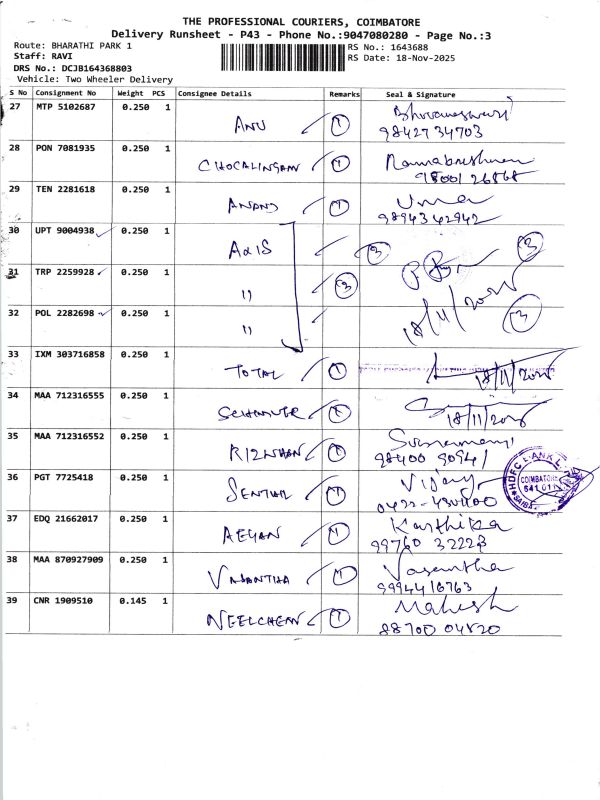 THE PROFESSIONAL COURIERS, COIMBATORE
Delivery Runsheet - P43 - Phone No.:9047080280 - Page No.:3
Route: BHARATHI PARK 1 RS No.: 1643688
Staff: RAVI RS Date: 18-Nov-2025
DRS No.: DCJB164368803
Vehicle: Two Wheeler Delivery
S No Consignment No Weight PCS Consignee Details Remarks Seal & Signature
27 MTP 5102687 0.250 1 ANU 1 Bhuvaneswari
98427 34703
28 PON 7081935 0.250 1 CHOCALINGAM 1 Ramakrishnan
29 TEN 2281618 0.250 1 ANAND 1 Uma
98943 42942
30 UPT 9004938 0.250 1 AXIS 3 3
31 TRP 2259928 0.250 1 " 3
32 POL 2282698 0.250 1 " 18/11/2025 3
33 IXM 303716858 0.250 1 TOTAL 1 18/11/2025
34 MAA 712316555 0.250 1 1 18/11/2025
35 MAA 712316552 0.250 1 RIZWHAN 1
98400 90941
36 PGT 7725418 0.250 1 SENTHIL 1 Vijay
HDFC BANK
COIMBATORE
641 011
37 EDQ 21662017 0.250 1 1 Karthika
99760 32223
38 MAA 870927909 0.250 1 VASANTHA 1 Vasantha
9994416763
39 CNR 1909510 0.145 1 NEELCHEM 1 Mahesh
88700 04820